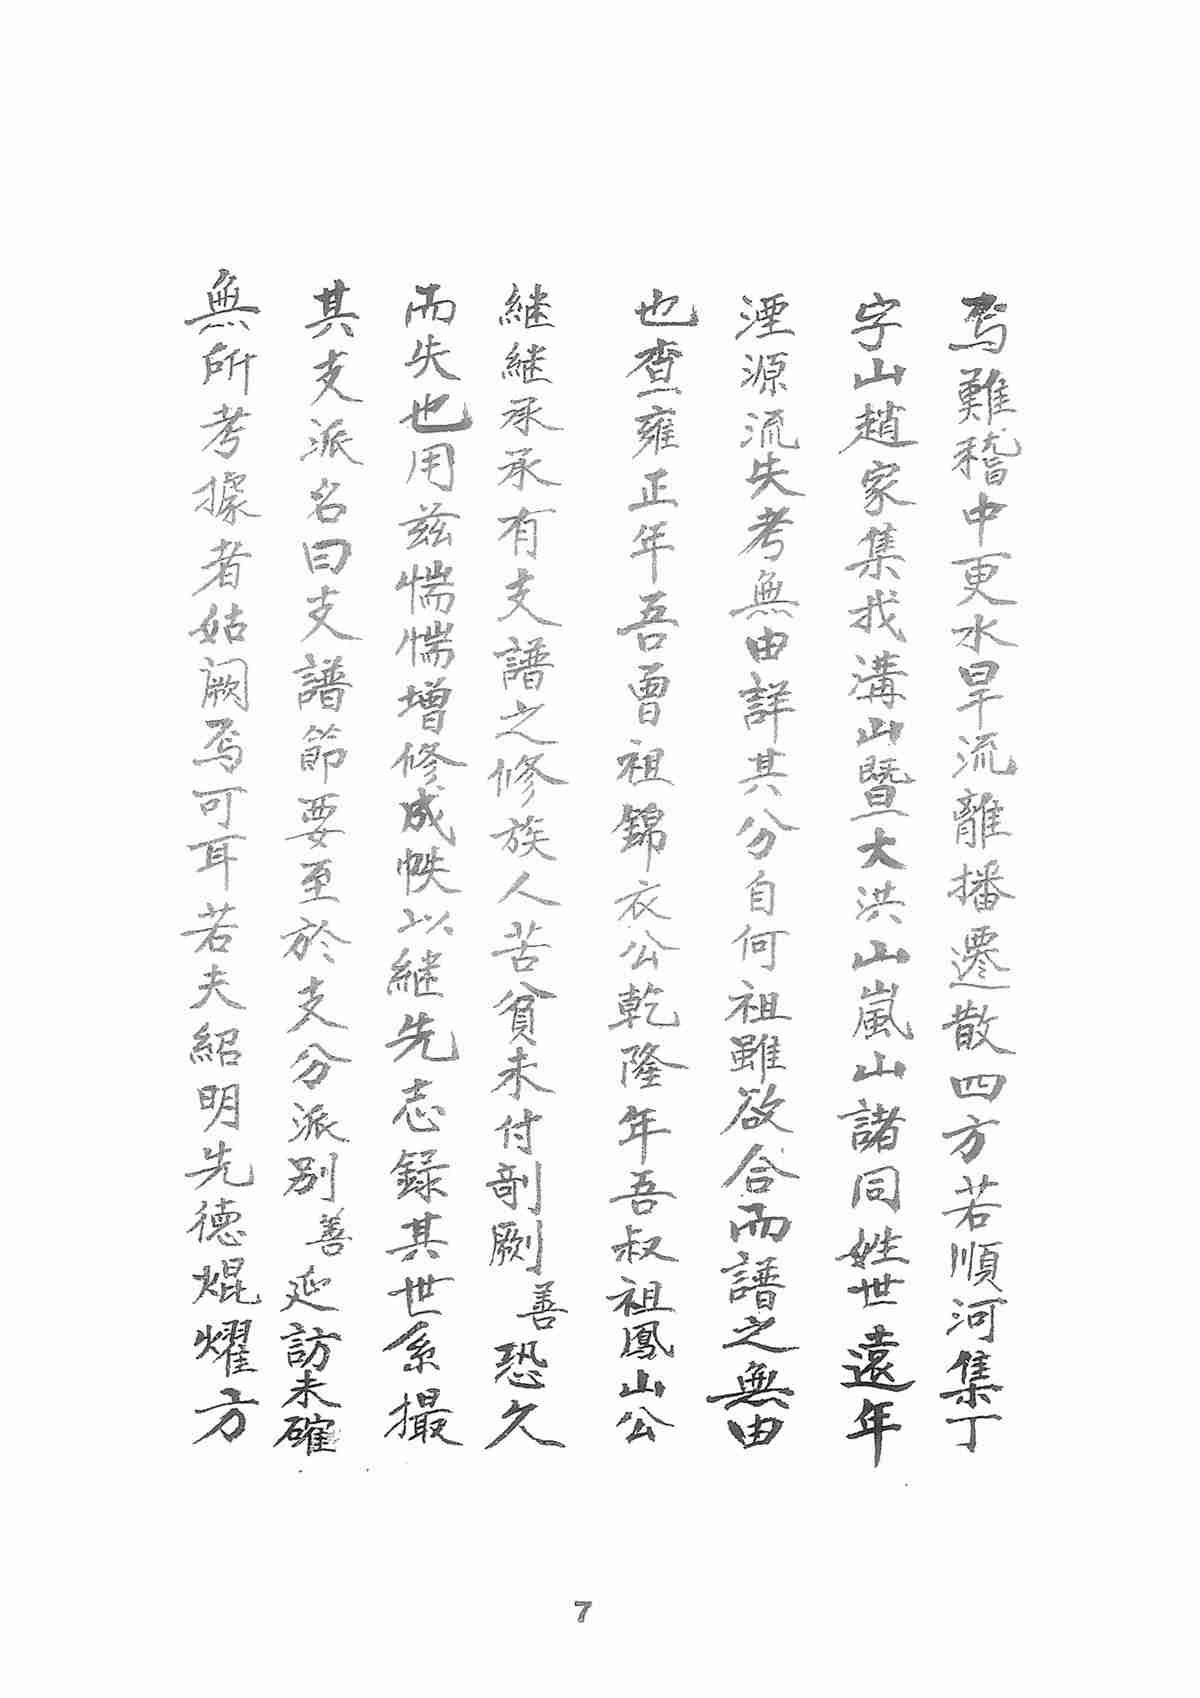 焉難稽中更水旱流離播遷散四方若順河集丁
字山趙家集找溝山暨大洪山嵐山諸同姓世遠年
湮源流失考無由詳其分自何祖雖欲合而譜之無由
也查雍正年吾曾祖錦衣公乾隆年吾叔祖鳳山公
継継承承有支譜之修族人苦貧未付剞劂善恐久
而失也用茲惴惴增修成帙以継先志錄其世系撮
其支派名曰支譜節要至於支分派別善延訪未確
無所考據者姑闕焉可耳若夫紹明先德焜耀方
7